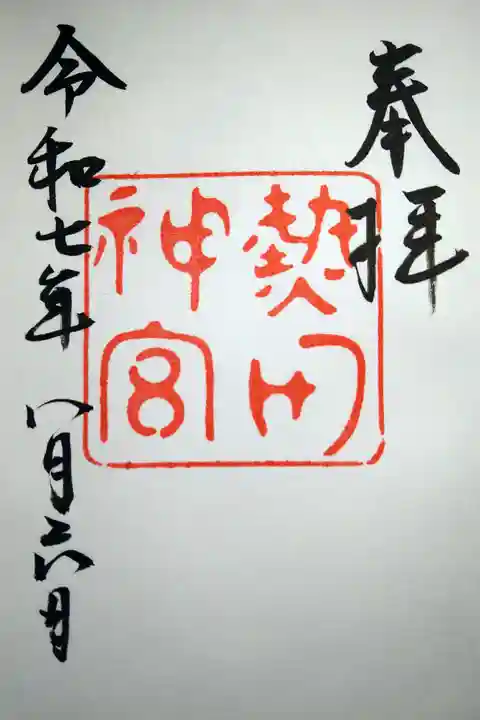 奉拝
熱田
神宮
令和七年 八月二六日